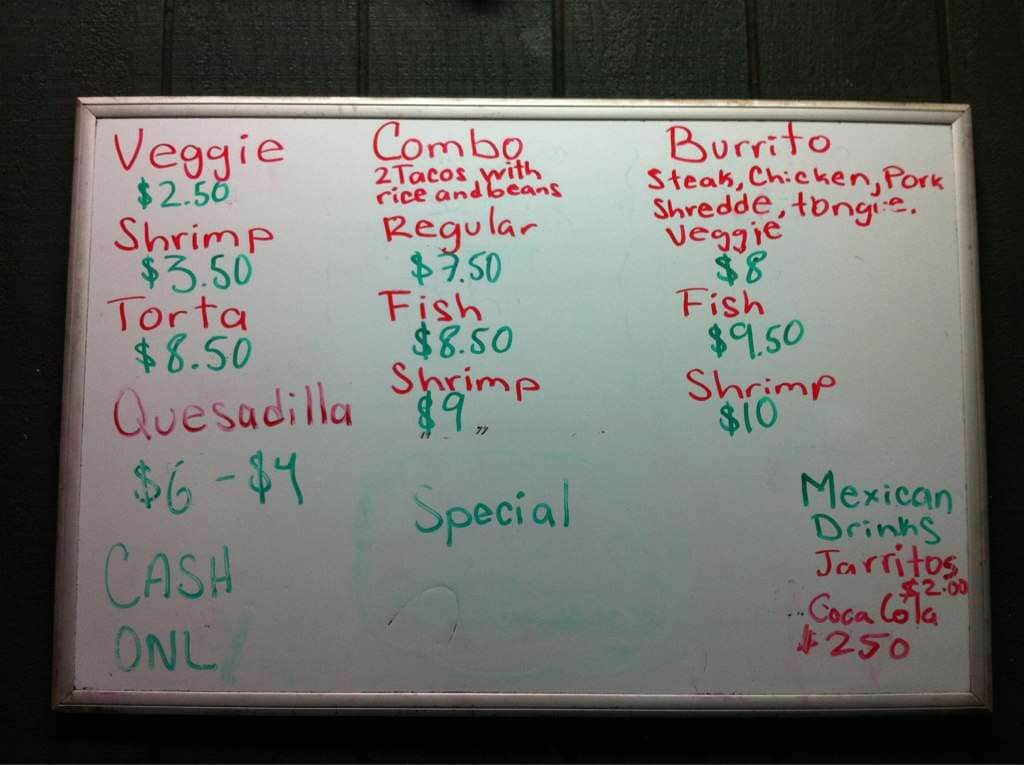 Veggie
$2.50
Shrimp
$3.50
Torta
$8.50
Quesadilla
$6 - $4
CASH
ONL
Combo
2 Tacos with
rice and beans
Regular
$7.50
Fish
$8.50
Shrimp
$9
Special
Burrito
Steak, Chicken, Pork
Shredde, tongue.
Veggie
$8
Fish
$9.50
Shrimp
$10
Mexican
Drinks
Jarritos
$2.00
Coca Cola
$250